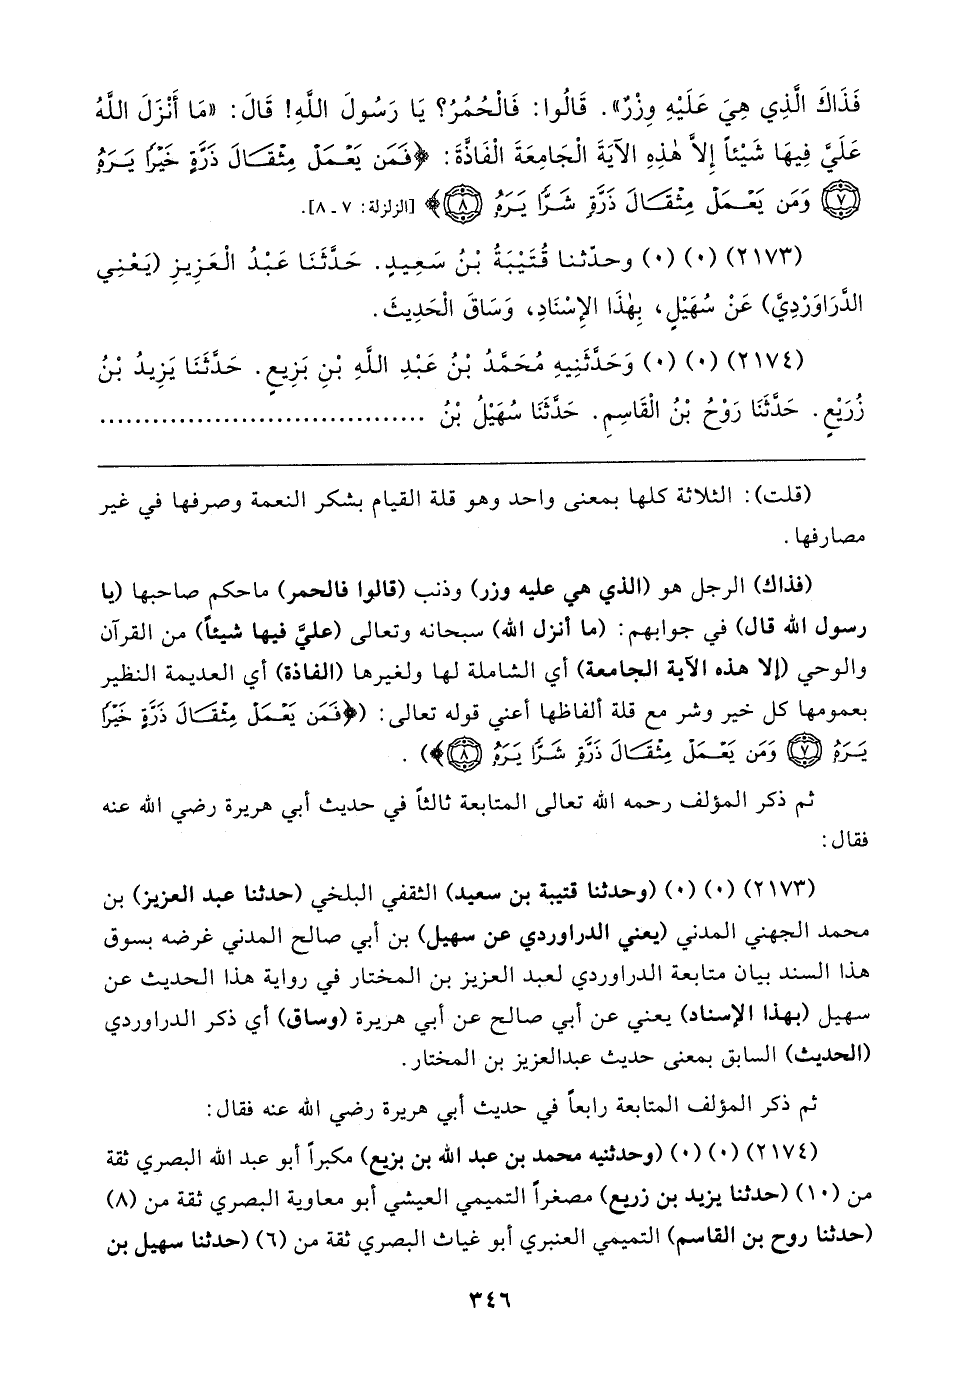 فَذَاكَ الَّذِي هِيَ عَلَيْهِ وِزْرٌ». قَالُوا: فَالْحُمُرُ؟ يَا رَسُولَ اللَّهِ! قَالَ: «مَا أَنْزَلَ اللَّهُ
عَلَيَّ فِيهَا شَيْئاً إِلاَّ هٰذِهِ الآيَةَ الْجَامِعَةَ الْفَاذَّةَ: ﴿فَمَن يَعْمَلْ مِثْقَالَ ذَرَّةٍ خَيْرًا يَرَهُ
﴿٧﴾ وَمَن يَعْمَلْ مِثْقَالَ ذَرَّةٍ شَرًّا يَرَهُ ﴿٨﴾﴾ [الزلزلة: ٧ ـ ٨].
(٢١٧٣) (٠) (٠) وحدّثنا قُتَيْبَةُ بْنُ سَعِيدٍ. حَدَّثَنَا عَبْدُ الْعَزِيزِ (يَعْنِي
الدَّرَاوَرْدِيَّ) عَنْ سُهَيْلٍ، بِهٰذَا الإِسْنَادِ، وَسَاقَ الْحَدِيثَ.
(٢١٧٤) (٠) (٠) وَحَدَّثَنِيهِ مُحَمَّدُ بْنُ عَبْدِ اللَّهِ بْنِ بَزِيعٍ. حَدَّثَنَا يَزِيدُ بْنُ
زُرَيْعٍ. حَدَّثَنَا رَوْحُ بْنُ الْقَاسِمِ. حَدَّثَنَا سُهَيْلُ بْنُ .....................................
(قلت): الثلاثة كلها بمعنى واحد وهو قلة القيام بشكر النعمة وصرفها في غير
مصارفها.
(فذاك) الرجل هو (الذي هي عليه وزر) وذنب (قالوا فالحمر) ماحكم صاحبها (يا
رسول الله قال) في جوابهم: (ما أنزل الله) سبحانه وتعالى (عليَّ فيها شيئاً) من القرآن
والوحي (إلا هذه الآية الجامعة) أي الشاملة لها ولغيرها (الفاذة) أي العديمة النظير
بعمومها كل خير وشر مع قلة ألفاظها أعني قوله تعالى: (﴿فَمَن يَعْمَلْ مِثْقَالَ ذَرَّةٍ خَيْرًا
يَرَهُ ﴿٧﴾ وَمَن يَعْمَلْ مِثْقَالَ ذَرَّةٍ شَرًّا يَرَهُ ﴿٨﴾﴾).
ثم ذكر المؤلف رحمه الله تعالى المتابعة ثالثاً في حديث أبي هريرة رضي الله عنه
فقال:
(٢١٧٣) (٠) (٠) (وحدثنا قتيبة بن سعيد) الثقفي البلخي (حدثنا عبد العزيز) بن
محمد الجهني المدني (يعني الدراوردي عن سهيل) بن أبي صالح المدني غرضه بسوق
هذا السند بيان متابعة الدراوردي لعبد العزيز بن المختار في رواية هذا الحديث عن
سهيل (بهذا الإسناد) يعني عن أبي صالح عن أبي هريرة (وساق) أي ذكر الدراوردي
(الحديث) السابق بمعنى حديث عبدالعزيز بن المختار.
ثم ذكر المؤلف المتابعة رابعاً في حديث أبي هريرة رضي الله عنه فقال:
(٢١٧٤) (٠) (٠) (وحدثنيه محمد بن عبد الله بن بزيع) مكبراً أبو عبد الله البصري ثقة
من (١٠) (حدثنا يزيد بن زريع) مصغراً التميمي العيشي أبو معاوية البصري ثقة من (٨)
(حدثنا روح بن القاسم) التميمي العنبري أبو غياث البصري ثقة من (٦) (حدثنا سهيل بن
٣٤٦